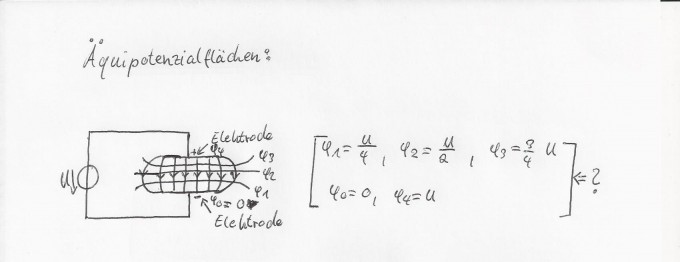 Äquipotenzialflächen:
Elektrode
+ φ4
φ3
φ2
φ1
U
- φ0 = 0
Elektrode
[φ1 = U/4, φ2 = U/2, φ3 = 3/4 U
φ0 = 0, φ4 = U] ⇐ ?